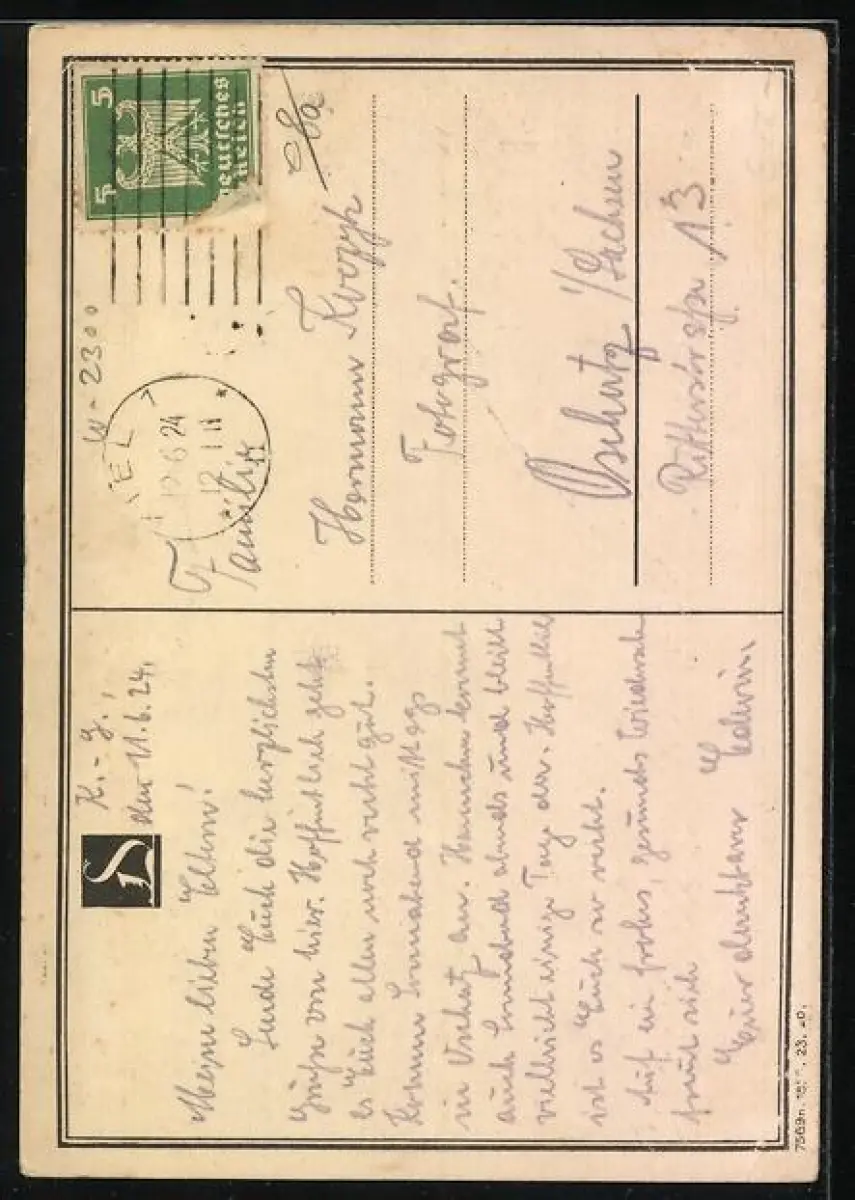 K.-J.,
den 11.6.24.
Meine lieben Eltern!
Sende Euch die herzlichsten
Grüße von hier. Hoffentlich geht
es Euch allen noch recht gut.
Komme Sonnabend mittag
in Oschatz an. Hannchen kommt
auch Sonnabend abends und bleibt
vielleicht einige Tage da. Hoffentlich
ist es Euch so recht.
Auf ein frohes, gesundes Wiedersehn
freut sich
Euer dankbarer Edwin.
5 5
Deutsches
Reich
W-2300
12.6.24
Familie
Hermann
Fotograf.
Oschatz i/Sachsen
Ritterstr 13
23.